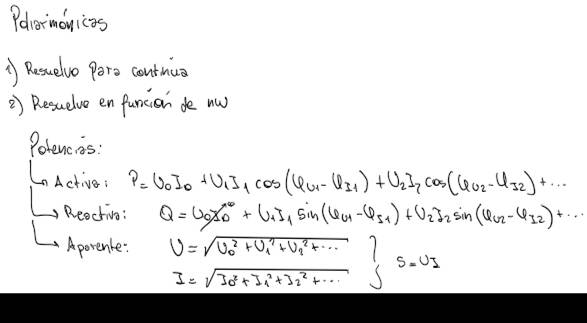 Poliarmónicas
1) Resuelvo para continua
2) Resuelvo en función de nω
Potencias:
↳ Activa: P = U₀I₀ + U₁I₁ cos(φ_U1 - φ_I1) + U₂I₂ cos(φ_U2 - φ_I2) + ...
↳ Reactiva: Q = U₀I₀⁰ + U₁I₁ sin(φ_U1 - φ_I1) + U₂I₂ sin(φ_U2 - φ_I2) + ...
↳ Aparente: U = √(U₀² + U₁² + U₂² + ...)
I = √(I₀² + I₁² + I₂² + ...) } S = UI